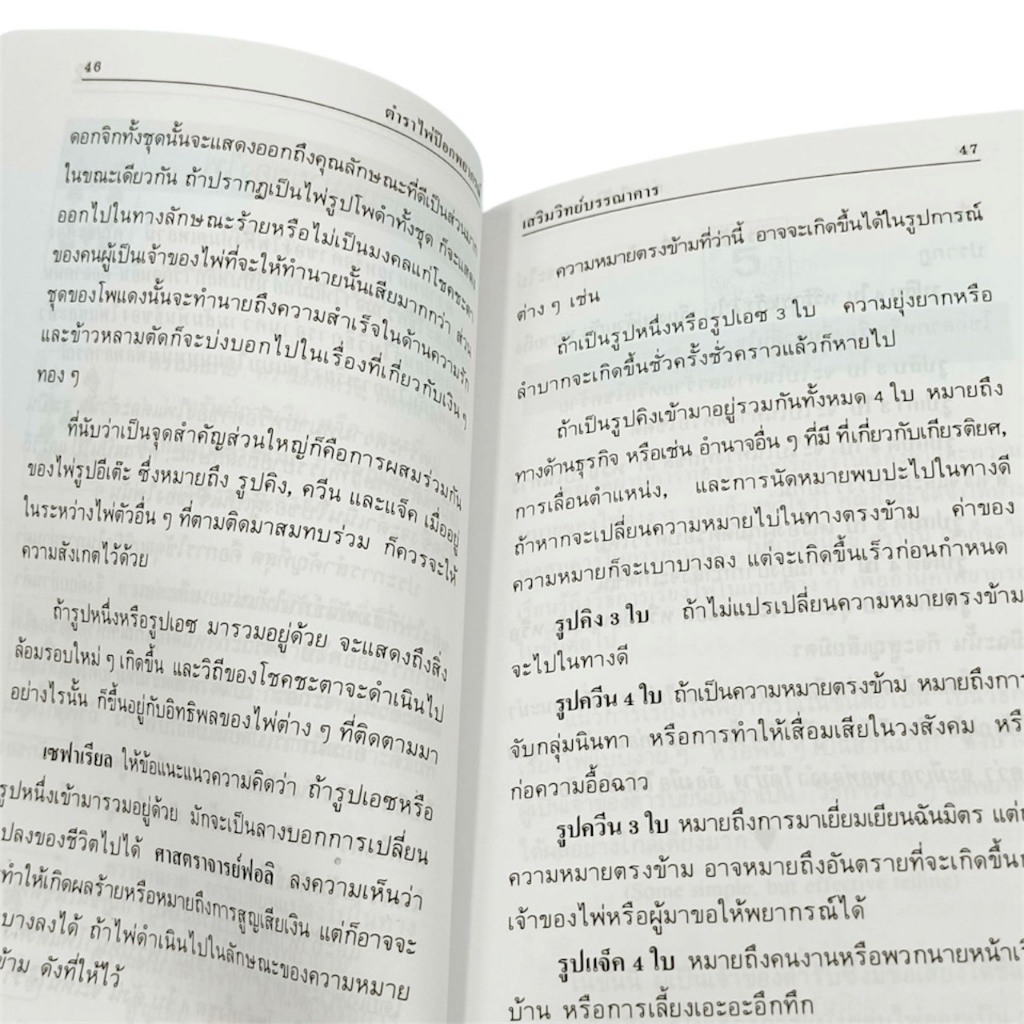 46
ตำราไพ่ป๊อกพยากรณ์
ดอกจิกทั้งชุดนั้นจะแสดงออกถึงคุณลักษณะที่ดีเป็นส่วนมาก
ในขณะเดียวกัน ถ้าปรากฏเป็นไพ่รูปโพดำทั้งชุด ก็จะแสดง
ออกไปในทางลักษณะร้ายหรือไม่เป็นมงคลแก่โชคชะตา
ของคนผู้เป็นเจ้าของไพ่ที่จะให้ทำนายนั้นเสียมากกว่า ส่วน
ชุดของโพแดงนั้นจะทำนายถึงความสำเร็จในด้านความรัก
และข้าวหลามตัดก็จะบ่งบอกไปในเรื่องที่เกี่ยวกับเงิน ๆ
ทอง ๆ
ที่นับว่าเป็นจุดสำคัญส่วนใหญ่ก็คือการผสมร่วมกัน
ของไพ่รูปอีเต๊ะ ซึ่งหมายถึง รูปคิง, ควีน และแจ็ค เมื่ออยู่
ในระหว่างไพ่ตัวอื่น ๆ ที่ตามติดมาสมทบร่วม ก็ควรจะให้
ความสังเกตไว้ด้วย
ถ้ารูปหนึ่งหรือรูปเอซ มารวมอยู่ด้วย จะแสดงถึงสิ่ง
ล้อมรอบใหม่ ๆ เกิดขึ้น และวิถีของโชคชะตาจะดำเนินไป
อย่างไรนั้น ก็ขึ้นอยู่กับอิทธิพลของไพ่ต่าง ๆ ที่ติดตามมา
เซฟาเรียล ให้ข้อแนะแนวความคิดว่า ถ้ารูปเอซหรือ
รูปหนึ่งเข้ามารวมอยู่ด้วย มักจะเป็นลางบอกการเปลี่ยน
แปลงของชีวิตไปได้ ศาสตราจารย์ฟอลิ ลงความเห็นว่า
ทำให้เกิดผลร้ายหรือหมายถึงการสูญเสียเงิน แต่ก็อาจจะ
บางลงได้ ถ้าไพ่ดำเนินไปในลักษณะของความหมาย
ข้าม ดังที่ให้ไว้
47
เสริมวิทย์บรรณาคาร
ความหมายตรงข้ามที่ว่านี้ อาจจะเกิดขึ้นได้ในรูปการณ์
ต่าง ๆ เช่น
ถ้าเป็นรูปหนึ่งหรือรูปเอซ 3 ใบ ความยุ่งยากหรือ
ลำบากจะเกิดขึ้นชั่วครั้งชั่วคราวแล้วก็หายไป
ถ้าเป็นรูปคิงเข้ามาอยู่รวมกันทั้งหมด 4 ใบ หมายถึง
ทางด้านธุรกิจ หรือเช่น อำนาจอื่น ๆ ที่มี ที่เกี่ยวกับเกียรติยศ,
การเลื่อนตำแหน่ง, และการนัดหมายพบปะไปในทางดี
ถ้าหากจะเปลี่ยนความหมายไปในทางตรงข้าม ค่าของ
ความหมายก็จะเบาบางลง แต่จะเกิดขึ้นเร็วก่อนกำหนด
รูปคิง 3 ใบ ถ้าไม่แปรเปลี่ยนความหมายตรงข้าม
จะไปในทางดี
รูปควีน 4 ใบ ถ้าเป็นความหมายตรงข้าม หมายถึงการ
จับกลุ่มนินทา หรือการทำให้เสื่อมเสียในวงสังคม หรือ
ก่อความอื้อฉาว
รูปควีน 3 ใบ หมายถึงการมาเยี่ยมเยียนฉันมิตร แต่
ความหมายตรงข้าม อาจหมายถึงอันตรายที่จะเกิดขึ้น
เจ้าของไพ่หรือผู้มาขอให้พยากรณ์ได้
รูปแจ็ค 4 ใบ หมายถึงคนงานหรือพวกนายหน้า
บ้าน หรือการเลี้ยงเอะอะอึกทึก